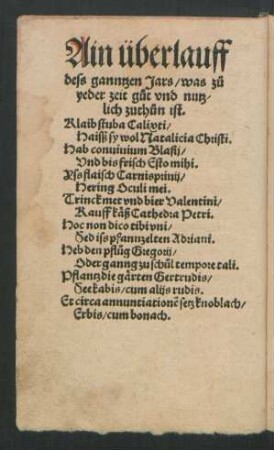 Ain überlauff
dess ganntzen Jars / was zů
yeder zeit gůt vnd nutz⸗
lich zuthůn ist.
Klaib stuba Calixti /
Haiß sy wol Natalicia Christi.
Hab conuiuium Blasij /
Vnd bis frisch Esto mihi.
Yss flaisch Carnispriuij /
Hering Oculi mei.
Trinck met vnd bier Valentini /
Kauff käß Cathedra Petri.
Hoc non dico tibi vni /
Sed iss pfannzelten Adriani.
Heb den pflůg Gregorij /
Oder ganng zu schůl tempore tali.
Pflantz die gärten Gertrudis /
See kabis / cum alijs rudis.
Et circa annuntiationē setz knoblach /
Erbis / cum bonach.